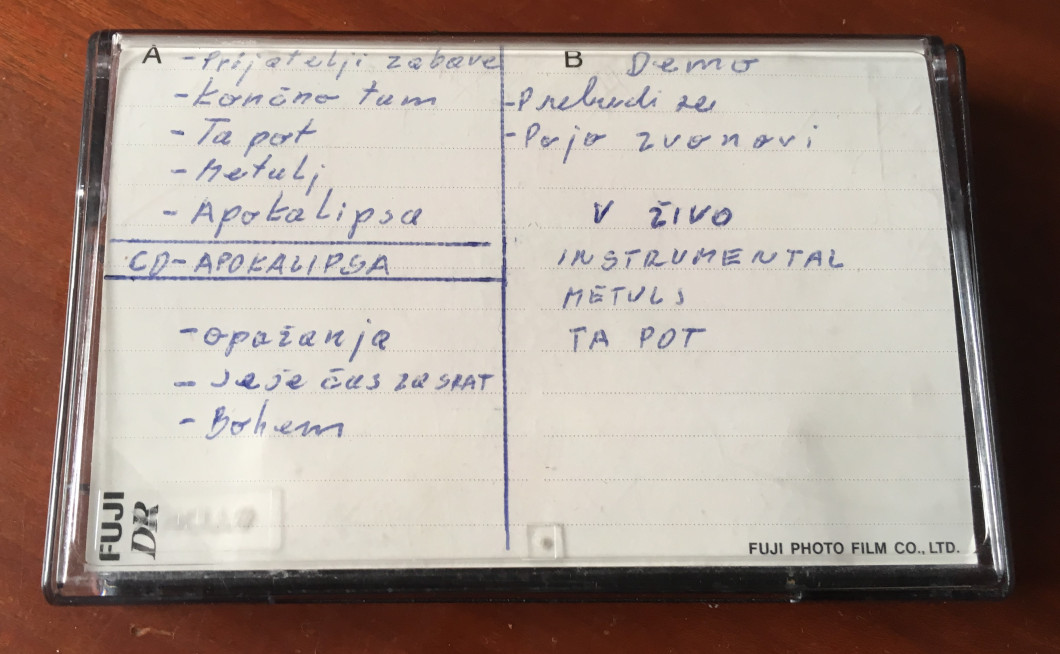 A
- Prijatelji zabave
- Končno tam
- Ta pot
- Metulj
- Apokalipsa
CD-APOKALIPSA
- opažanja
- Seje čas ZA SRAT
- Bohem
B
Demo
- Prebudi se
- Pojo zvonovi
V ŽIVO
INSTRUMENTAL
METULJ
TA POT
FUJI
DR
FUJI PHOTO FILM CO., LTD.